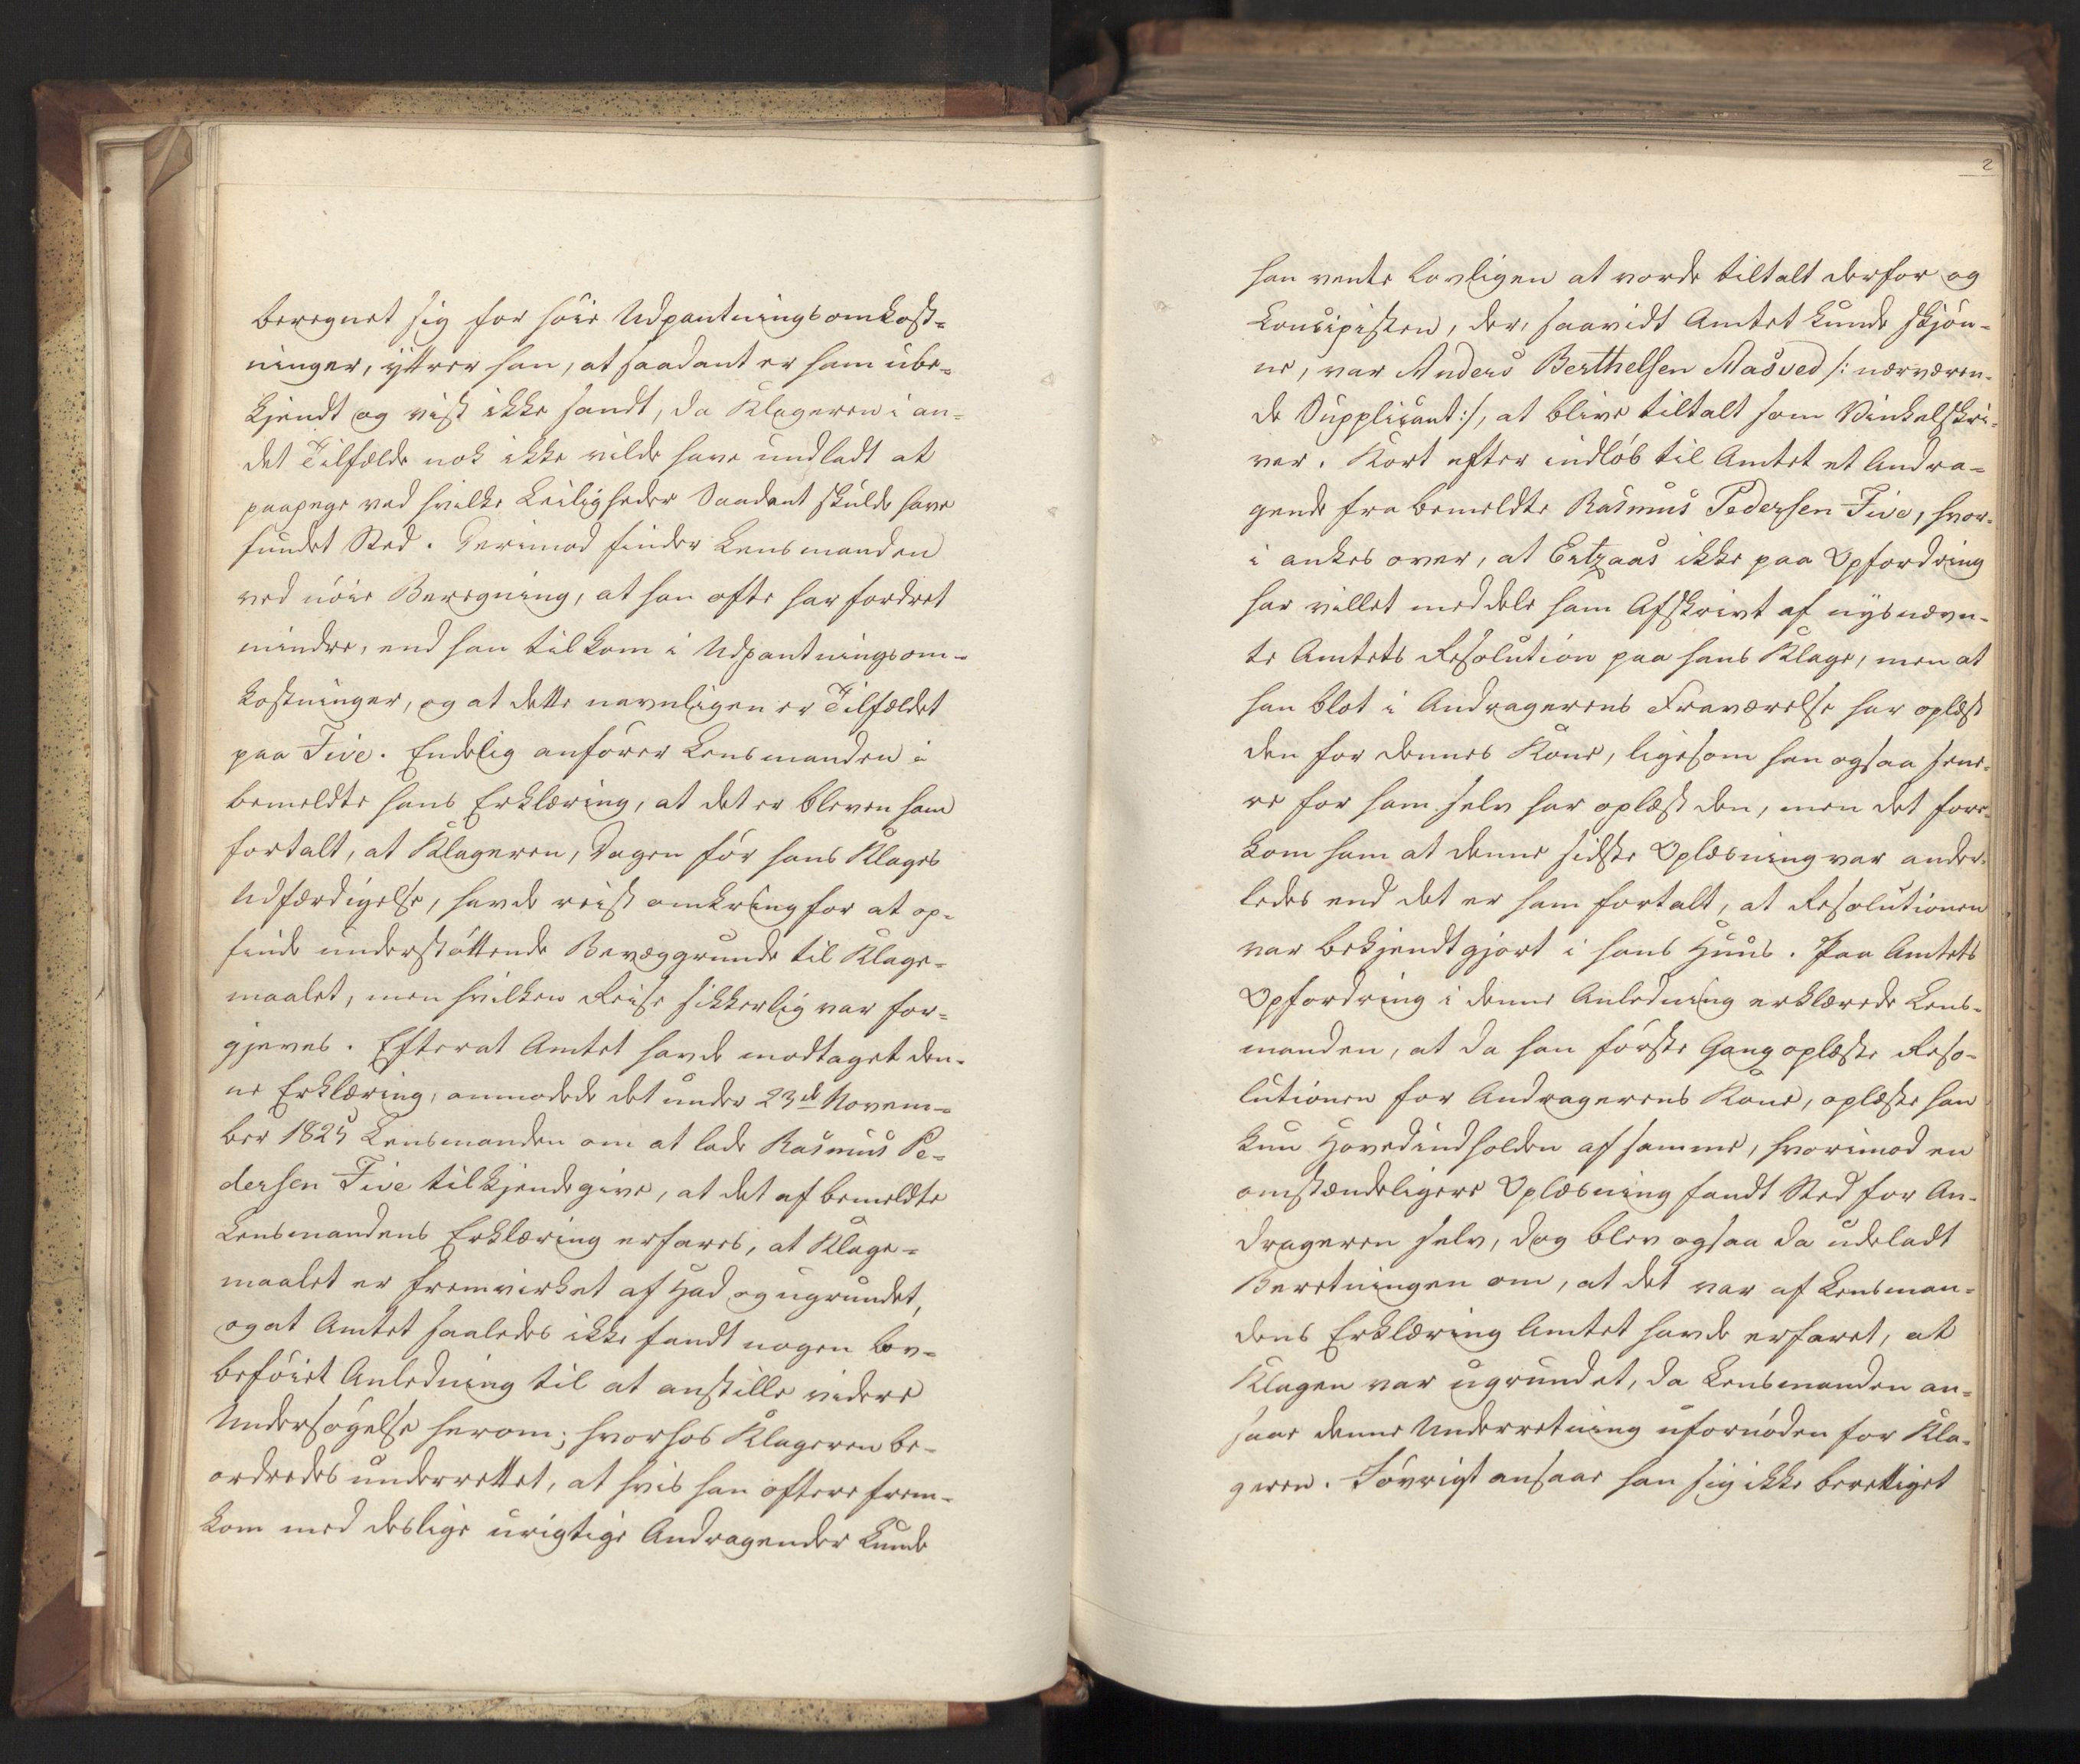 beregnet sig for høie Udpantningsomkost-
ninger, yttrer han, at saadant er ham ube-
kjendt og vist ikke sandt, da Klageren i an-
det Tilfælde nok ikke vilde have undladt at
paapege ved hvilke Leiligheder Saadant skulde have
fundet Sted. Derimod finder Lensmanden
ved nøie Beregning, at han ofte har fordret
mindre, end han tilkom i Udpantningsom-
kostninger, og at dette navnligen er Tilfældet
paa Five. Endelig anfører Lensmanden i
bemeldte hans Erklæring, at det er bleven ham
fortalt, at Klageren, Dagen før hans Klages
Udfærdigelse, havde reist omkring for at op-
finde understøttende Bevæggrunde til Klage-
maalet, men hvilken Reise sikkerlig var for-
gjeves. Efterat Amtet havde modtaget den-
ne Erklæring, anmodede det under 23de Novem-
ber 1825 Lensmanden om at lade Rasmus Pe-
dersen Five tilkjendegive, at det af bemeldte
Lensmandens Erklæring erfares, at Klage-
maalet er fremvirket af Had og ugrundet,
og at Amtet saaledes ikke fandt nogen lov-
beføiet Anledning til at anstille videre
Undersøgelse herom; hvorhos Klageren be-
ordredes underrettet, at hvis han oftere frem-
kom med deslige urigtige Andragender kunde
2
han vente lovligen at vorde tiltalt derfor og
Concipisten, der, saavidt Amtet kunde skjøn-
ne, var Anders Berthelsen Aasved /: nærværen-
de Supplicant :/, at blive tiltalt som Vinkelskri-
ver. Kort efter indløb til Amtet et Andra-
gende fra bemeldte Rasmus Pedersen Five, hvor-
i ankes over, at Eitzaas ikke paa Opfordring
har villet meddele ham Afskrivt af nysnævn-
te Amtets Resolution paa hans Klage, men at
han blot i Andragerens Fraværelse har oplæst
den for dennes Kone, ligesom han ogsaa sene-
re for ham selv har oplæst den, men det fore-
kom ham at denne sidste Oplæsning var ander-
ledes end det er ham fortalt, at Resolutionen
var bekjendtgjort i hans Huus. Paa Amtets
Opfordring i denne Anledning erklærede Lens-
manden, at da han første Gang oplæste Reso-
lutionen for Andragerens Kone, oplæste han
kun Hovedindholden af samme, hvorimod en
omstændeligere Oplæsning fandt Sted for An-
drageren selv, dog blev ogsaa da udeladt
Beretningen om, at det var af Lensman-
dens Erklæring Amtet havde erfaret, at
Klagen var ugrundet, da Lensmanden an-
saae denne Underretning ufornøden for Kla-
geren. Iøvrigt ansaae han sig ikke berettiget